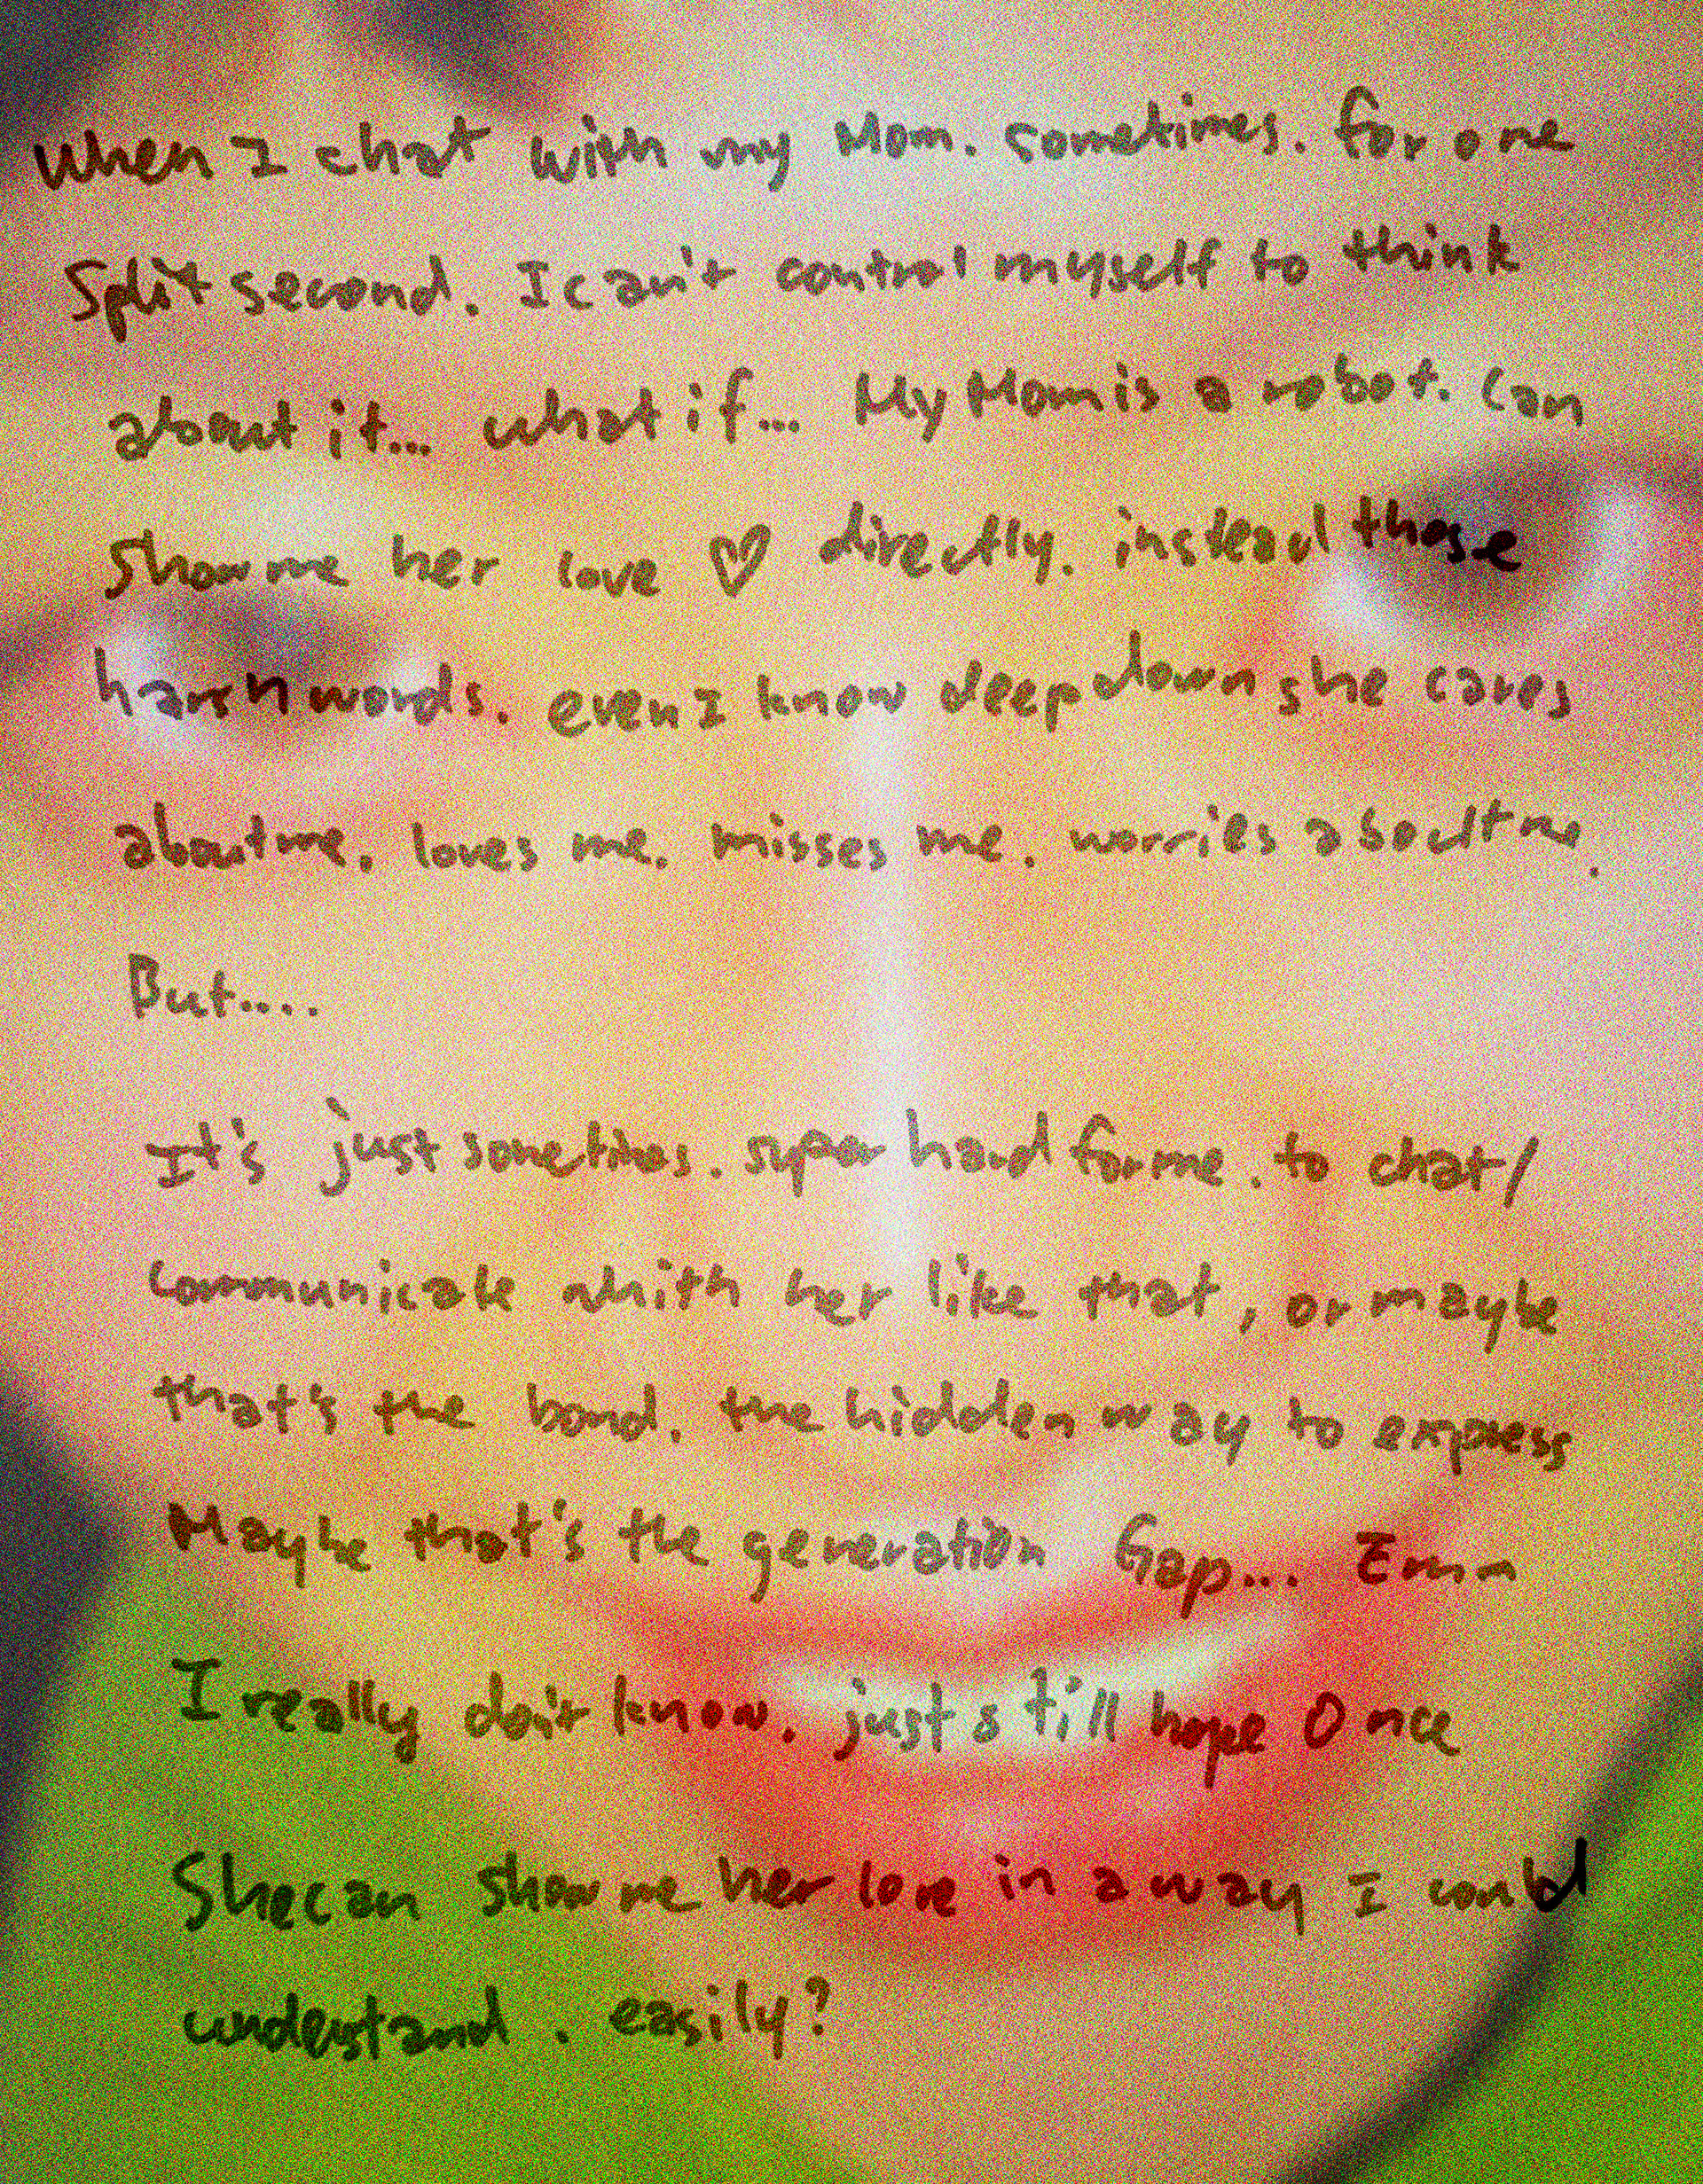 When I chat with my Mom. sometimes. for one
Split second. I can't control myself to think
about it... what if... My Mom is a robot. Can
Show me her love ♡ directly. instead those
harsh words. even I know deep down she cares
about me. loves me. misses me. worries about me.
But....
It's just sometimes. super hard for me. to chat/
Communicate whith her like that, or maybe
that's the bond. the hidden way to express
Maybe that's the generation Gap... Emm
I really don't know. just still hope Once
She can show me her love in a way I could
understand. easily?